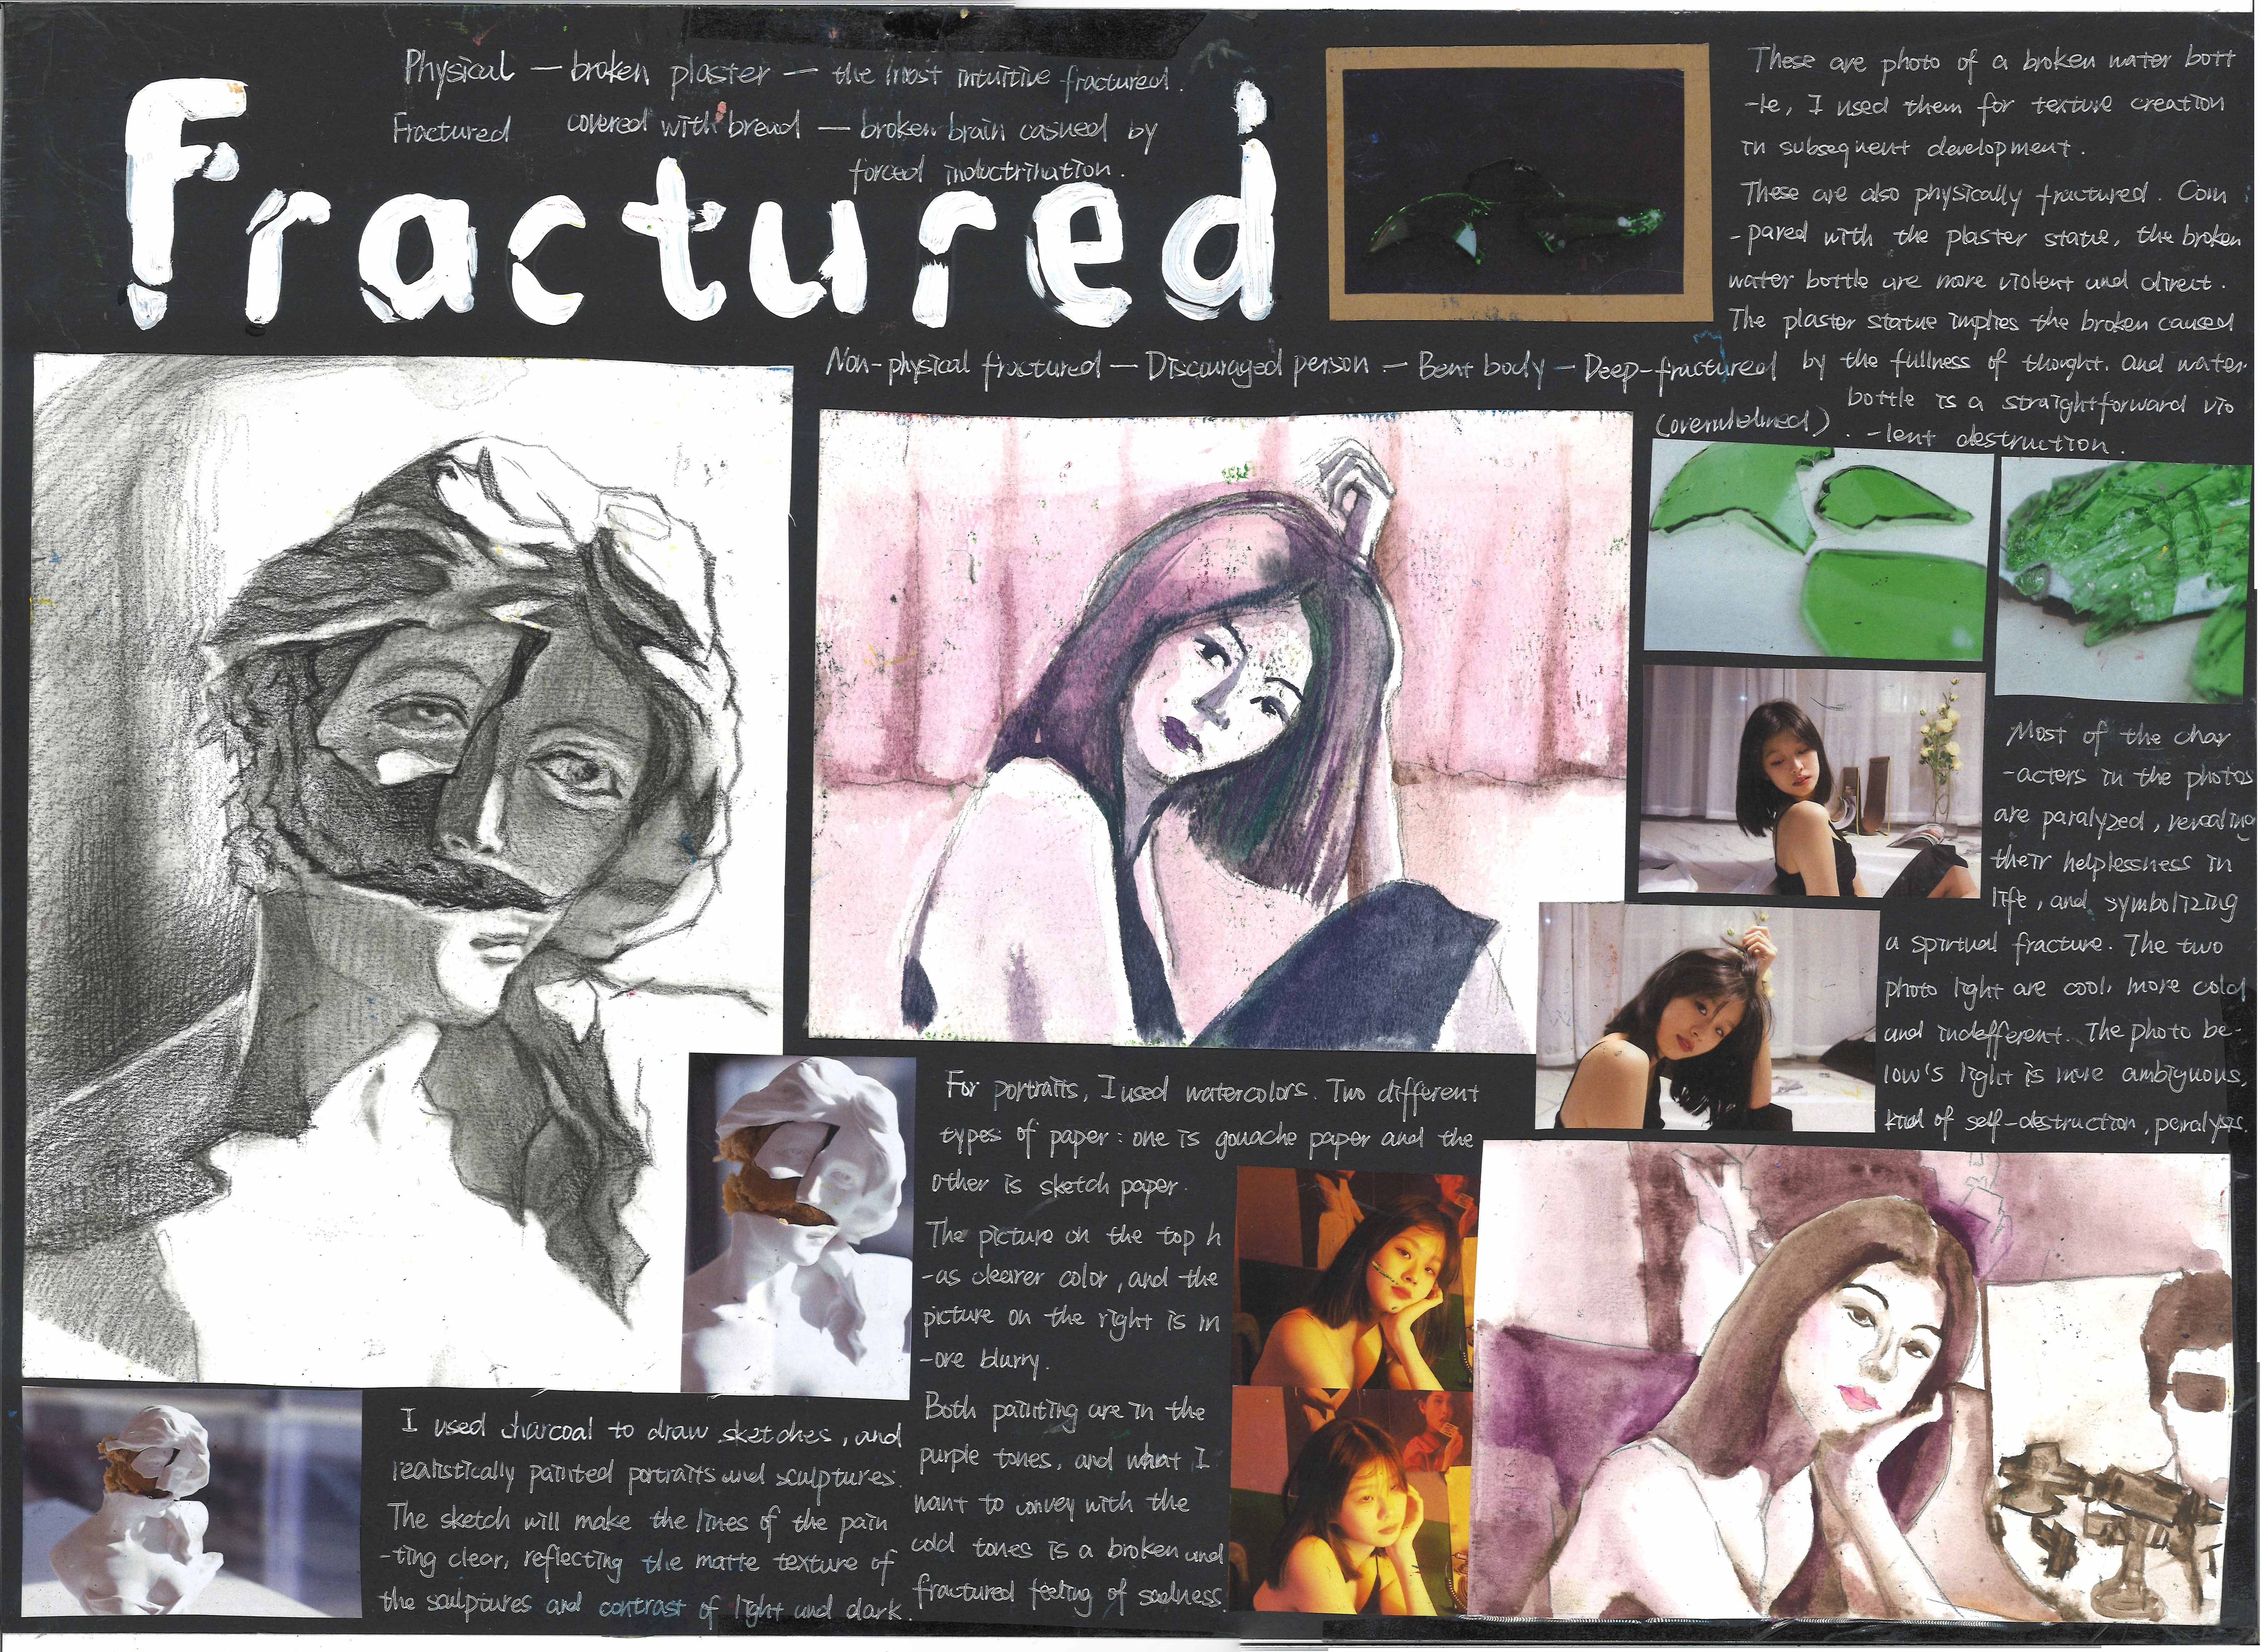 Physical — broken plaster — the most intuitive fractured.
Fractured covered with bread — broken brain casued by
forced indoctrination.
Fractured
These are photo of a broken water bott
-le, I used them for texture creation
in subsequent development.
These are also physically fractured. Com
-pared with the plaster statue, the broken
water bottle are more violent and direct.
The plaster statue implies the broken caused
by the fullness of thought. and water
bottle is a straightforward vio
-lent destruction.
Non-physical fractured — Discouraged person — Bent body — Deep-fractured
(overwhelmed)
Most of the char
-acters in the photos
are paralyzed, revealing
their helplessness in
life, and symbolizing
a spiritual fracture. The two
photo light are cool, more cold
and indefferent. The photo be-
low's light is more ambiguous,
kind of self-destruction, paralysis.
For portraits, I used watercolors. Two different
types of paper: one is gouache paper and the
other is sketch paper.
The picture on the top h
-as clearer color, and the
picture on the right is m
-ore blurry.
Both painting are in the
purple tones, and what I
want to convey with the
cold tones is a broken and
fractured feeling of sadness.
I used charcoal to draw sketches, and
realistically painted portraits and sculptures.
The sketch will make the lines of the pain
-ting clear, reflecting the matte texture of
the sculptures and contrast of light and dark.